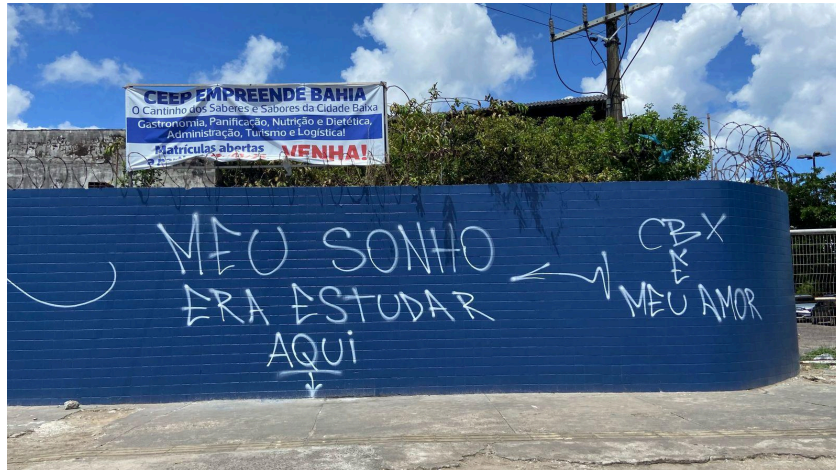 CEEP EMPREENDE BAHIA
O Cantinho dos Saberes e Sabores da Cidade Baixa
Gastronomia, Panificação, Nutrição e Dietética,
Administração, Turismo e Logística!
Matrículas abertas
VENHA!
MEU SONHO
ERA ESTUDAR
AQUI
CBX
É
MEU AMOR